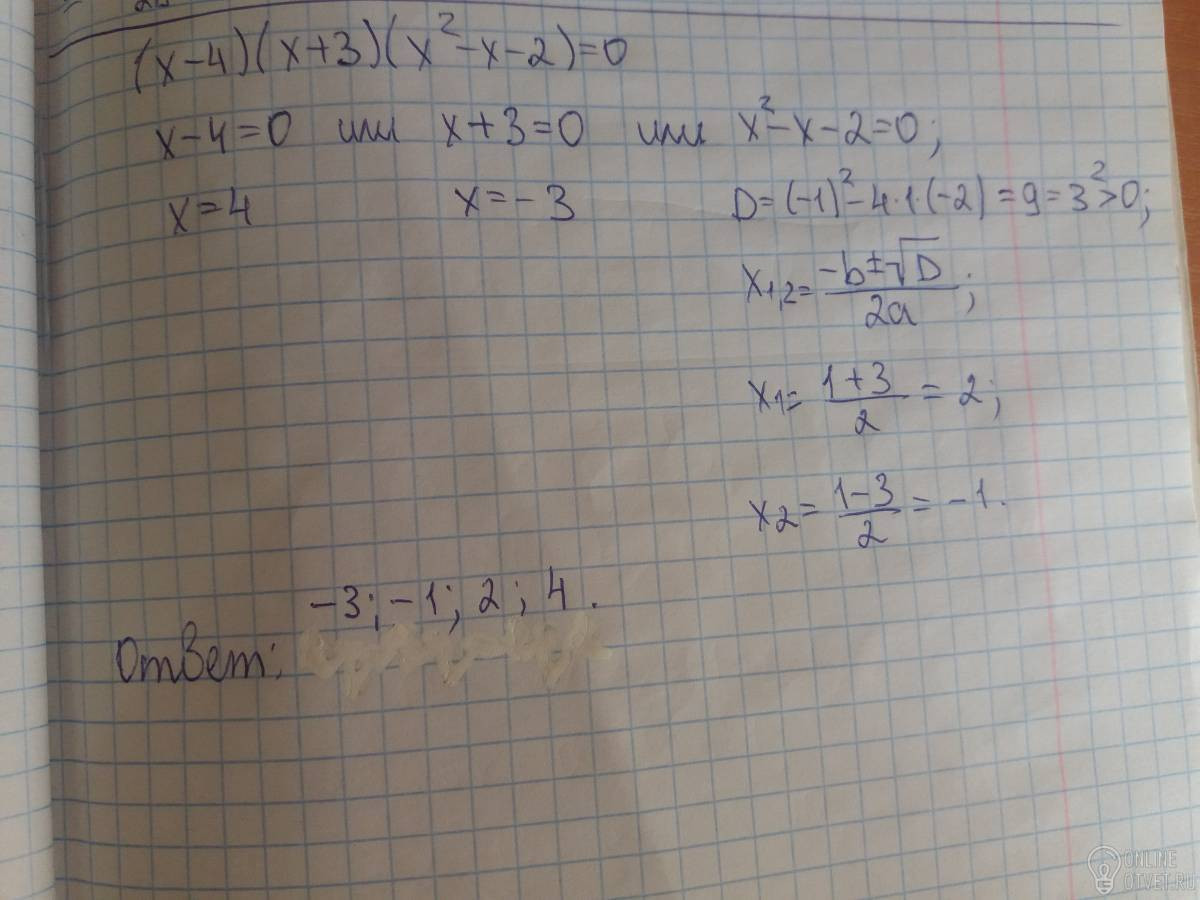 (x-4)(x+3)(x²-x-2)=0
x-4=0 или x+3=0 или x²-x-2=0;
x=4 x=-3 D=(-1)²-4·1·(-2)=9=3²>0;
x1,2=(-b±√D)/2a;
x1=(1+3)/2=2;
x2=(1-3)/2=-1.
-3;-1;2;4.
Ответ:
ONLINE
OTVET.RU